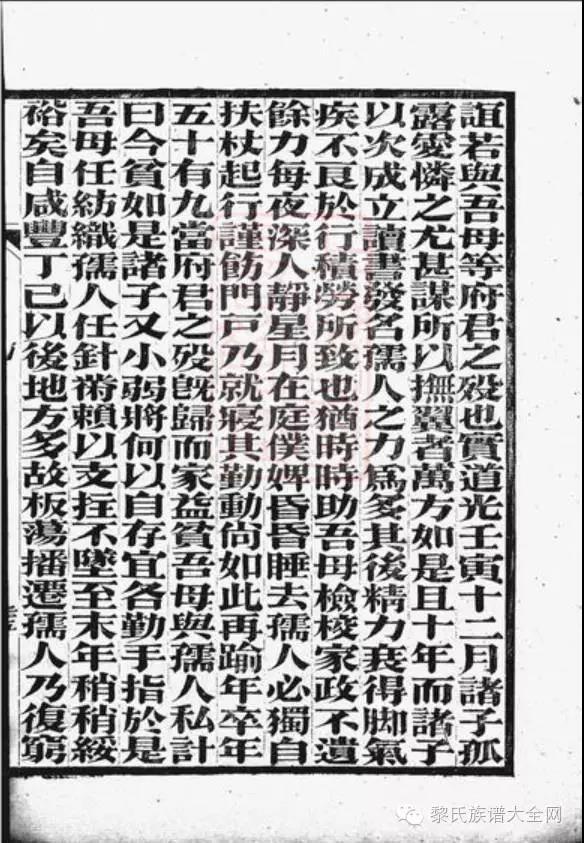 誼若與吾母等府君之歿也實道光壬寅十二月諸子孤
露愛憐之尤甚謀所以撫翼者萬方如是且十年而諸子
以次成立讀書發名孺人之力爲多其後精力衰得脚氣
疾不良於行積勞所致也猶時時助吾母檢校家政不遺
餘力每夜深人靜星月在庭僕婢昏昏睡去孺人必獨自
扶杖起行謹飭門戸乃就寢其勤動尚如此再踰年卒年
五十有九當府君之歿旣歸而家益貧吾母與孺人私計
曰今貧如是諸子又小弱將何以自存宜各勤手指於是
吾母任紡織孺人任針黹賴以支拄不墜至末年稍稍綏
裕矣自咸豐丁巳以後地方多故板蕩播遷孺人乃復窮
黎氏族谱大全网